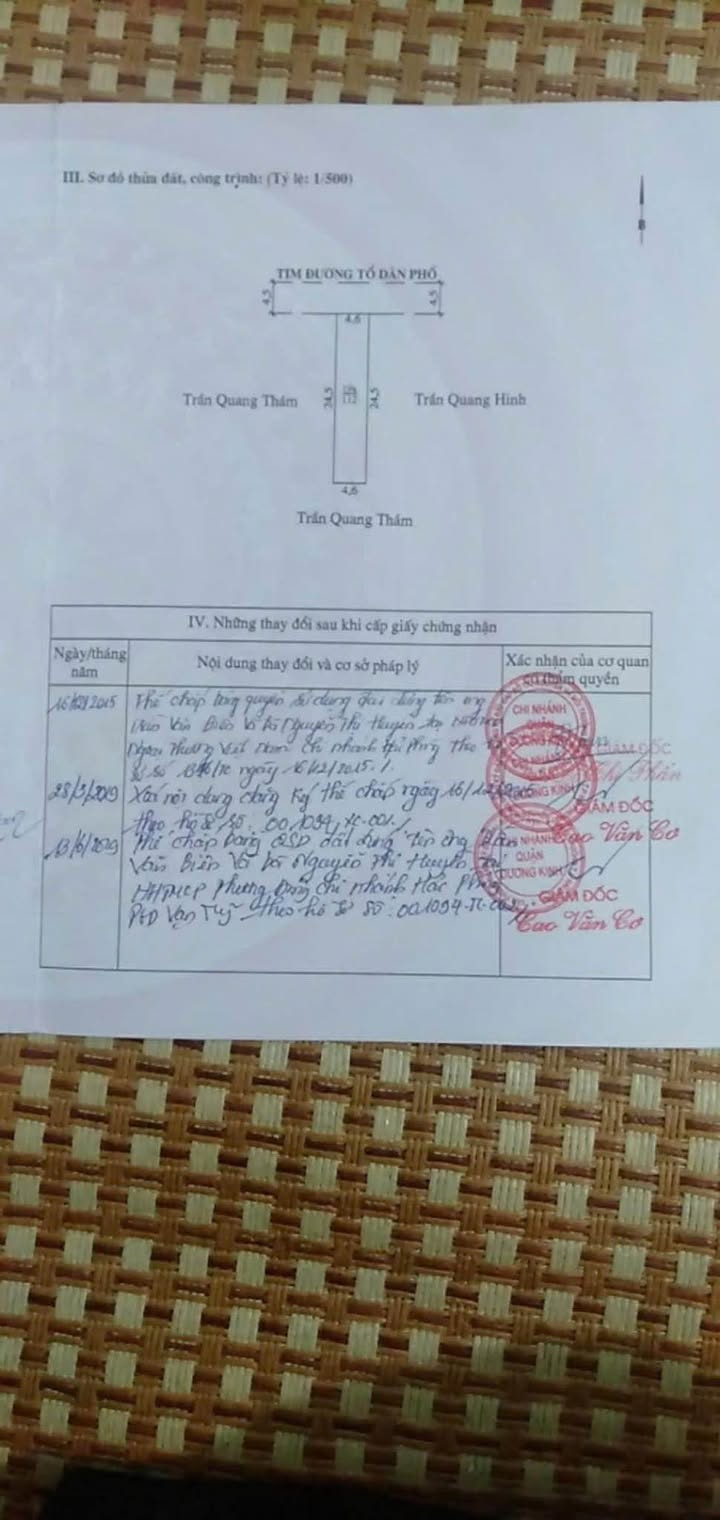 III. Sơ đồ thửa đất, công trình: (Tỷ lệ: 1/500)
TIM ĐƯỜNG TỔ DÂN PHỐ
4,5
4,5
4,6
Trần Quang Thám
24,5
24,5
Trần Quang Hinh
4,6
Trần Quang Thám
IV. Những thay đổi sau khi cấp giấy chứng nhận
Ngày/tháng năm
Nội dung thay đổi và cơ sở pháp lý
Xác nhận của cơ quan có thẩm quyền
16/12/2015
Thế chấp bằng quyền sử dụng đất đứng tên ông
Văn Biên và bà Nguyễn Thị Huyền tại
Ngoại Thương Việt Nam chi nhánh Hải Phòng theo
sơ số ngày 16/12/2015.
28/3/2019
Xoá nội dung đăng ký thế chấp ngày 16/12/2015
theo hồ sơ số: 001094.XC.001.
13/6/2019
Thế chấp bằng QSD đất đứng tên ông
Văn Biên và bà Nguyễn Thị Huyền tại
NHTMCP Phương Đông chi nhánh Hải Phòng
PGD Vạn Mỹ theo hồ sơ số: 001094.TC.002
CHI NHÁNH
QUẬN
DƯƠNG KINH
GIÁM ĐỐC
DƯƠNG KINH
GIÁM ĐỐC
Cao Văn Cơ
NHÁNH
QUẬN
DƯƠNG KINH
GIÁM ĐỐC
Cao Văn Cơ